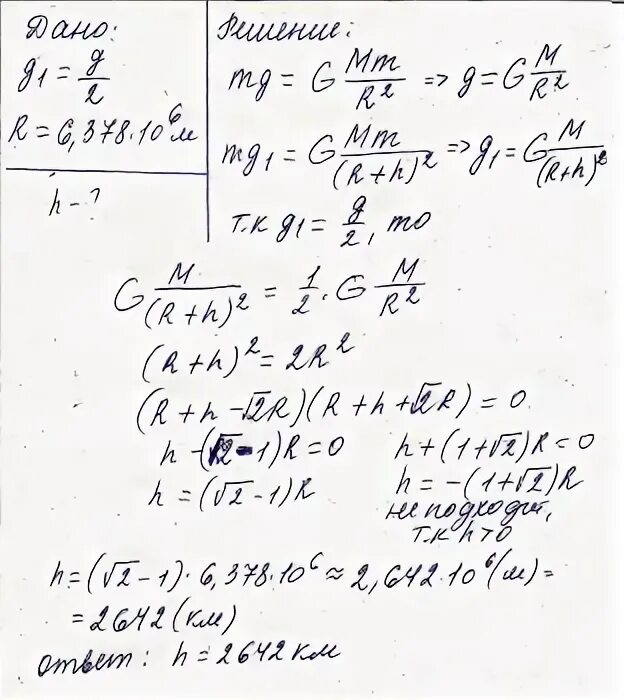 Дано:
g₁ = g/2
R = 6,378·10⁶ м
h - ?
Решение:
mg = G Mm/R² => g = G M/R²
mg₁ = G Mm/(R+h)² => g₁ = G M/(R+h)²
т.к g₁ = g/2, то
G M/(R+h)² = 1/2 · G M/R²
(R+h)² = 2R²
(R+h-√2R)(R+h+√2R) = 0
h-(√2-1)R=0
h = (√2-1)R
h+(1+√2)R=0
h=-(1+√2)R
не подходит,
т.к h>0
h=(√2-1)·6,378·10⁶≈2,642·10⁶(м)=
=2642(км)
ответ: h=2642км